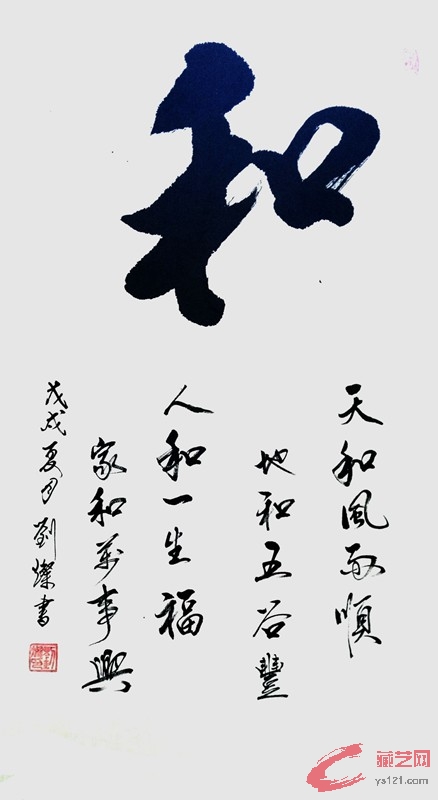 和
天和風雨順
地和五谷豐
人和一生福
家和萬事興
戊戌夏月劉燦書
藏艺网
ys121.com